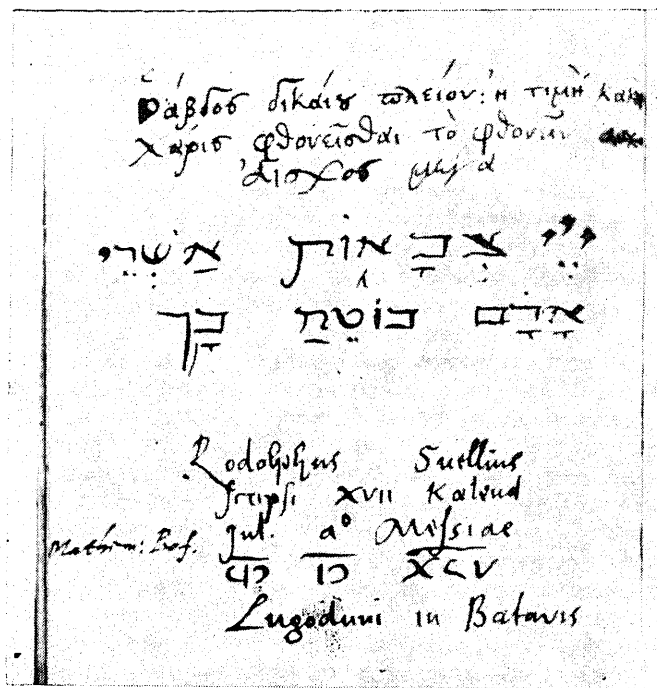 Ῥάβδος δικαίȣ πλεῖον: ἡ τιμὴ καὶ
χάρις φθονεῖσθαι τὸ φθονεῖν
αἶσχος μέγα
יְיָ צְבָאוֹת אַשְׁרֵי
אָדָם בּוֹטֵחַ בָּךְ
Rodolphus Snellius
scripsi XVII Kalend
Mathem: Prof. Jul. a° Messiae
CIↃ IↃ XCV
Lugoduni in Batavis